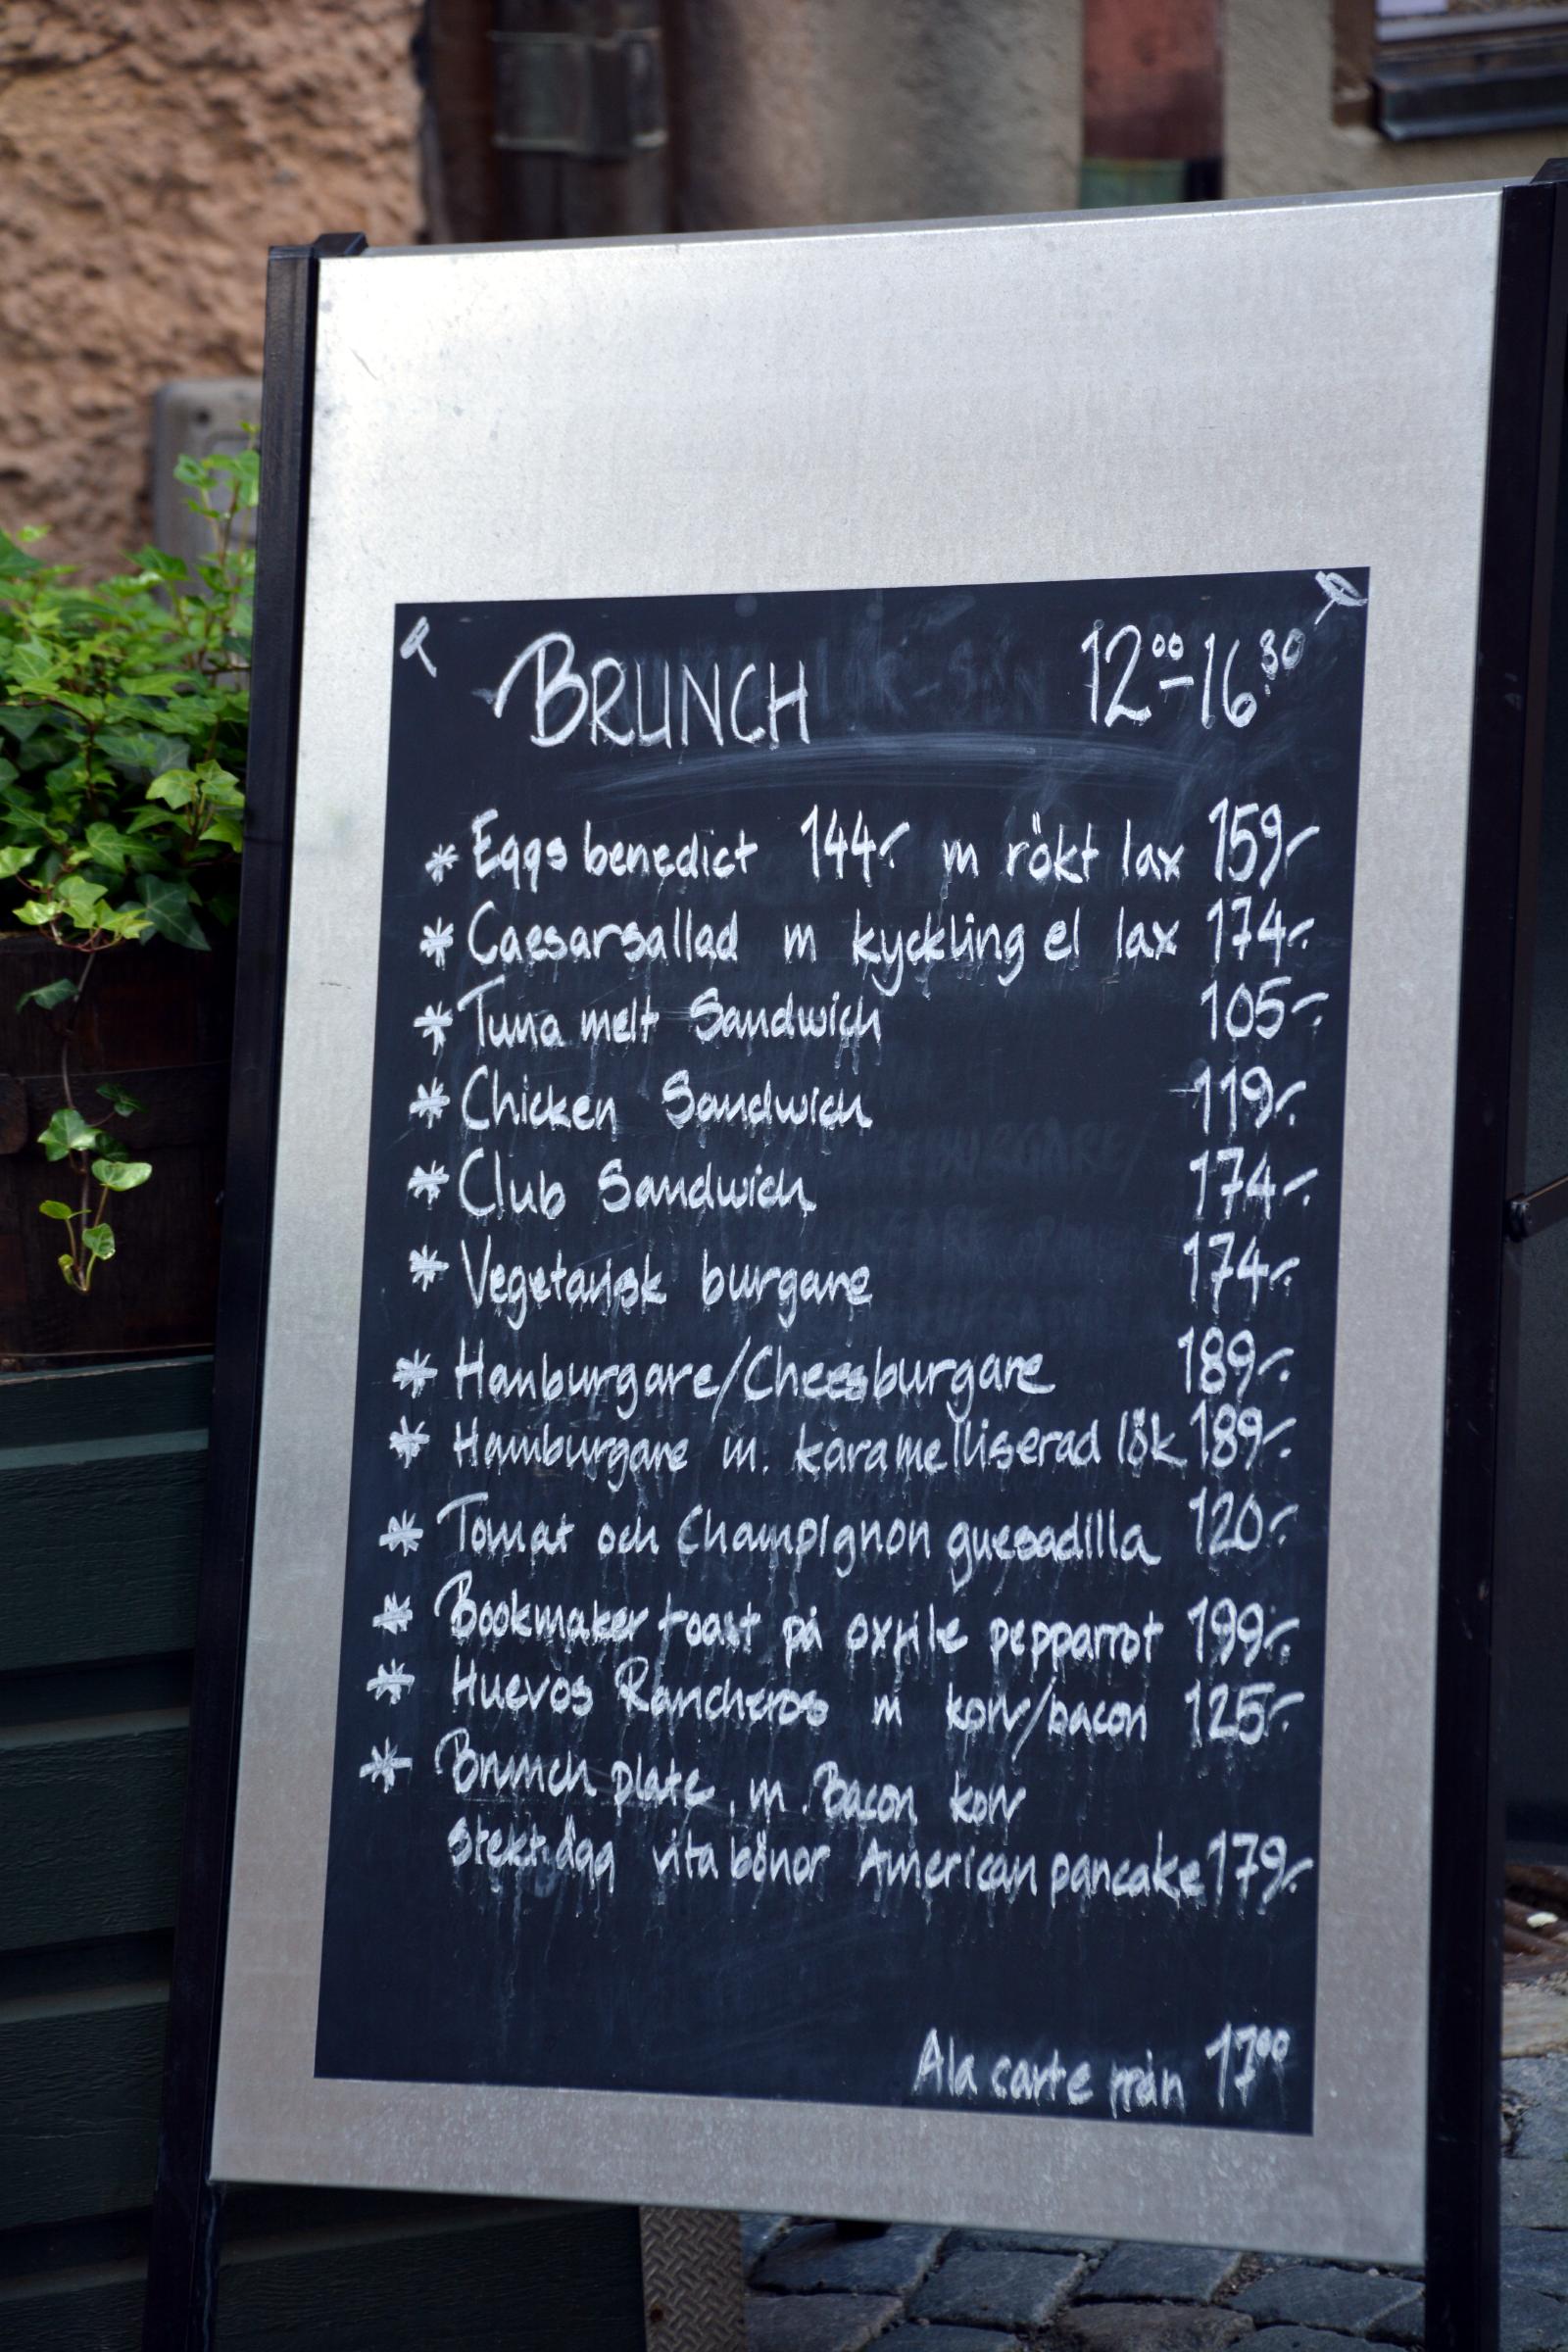 BRUNCH 12⁰⁰-16.³⁰
* Eggs benedict 144:- m rökt lax 159:-
* Caesarsallad m kyckling el lax 174:-
* Tuna melt Sandwich 105:-
* Chicken Sandwich 119:-
* Club Sandwich 174:-
* Vegetarisk burgare 174:-
* Hamburgare/Cheeseburgare 189:-
* Hamburgare m. karamelliserad lök 189:-
* Tomat och Champignon quesadilla 120:-
* Bookmaker toast på oxfile pepparrot 199:-
* Huevos Rancheros m korv/bacon 125:-
* Brunch plate m. Bacon korv
stekt ägg vita bönor American pancake 179:-
Ala carte från 17⁰⁰